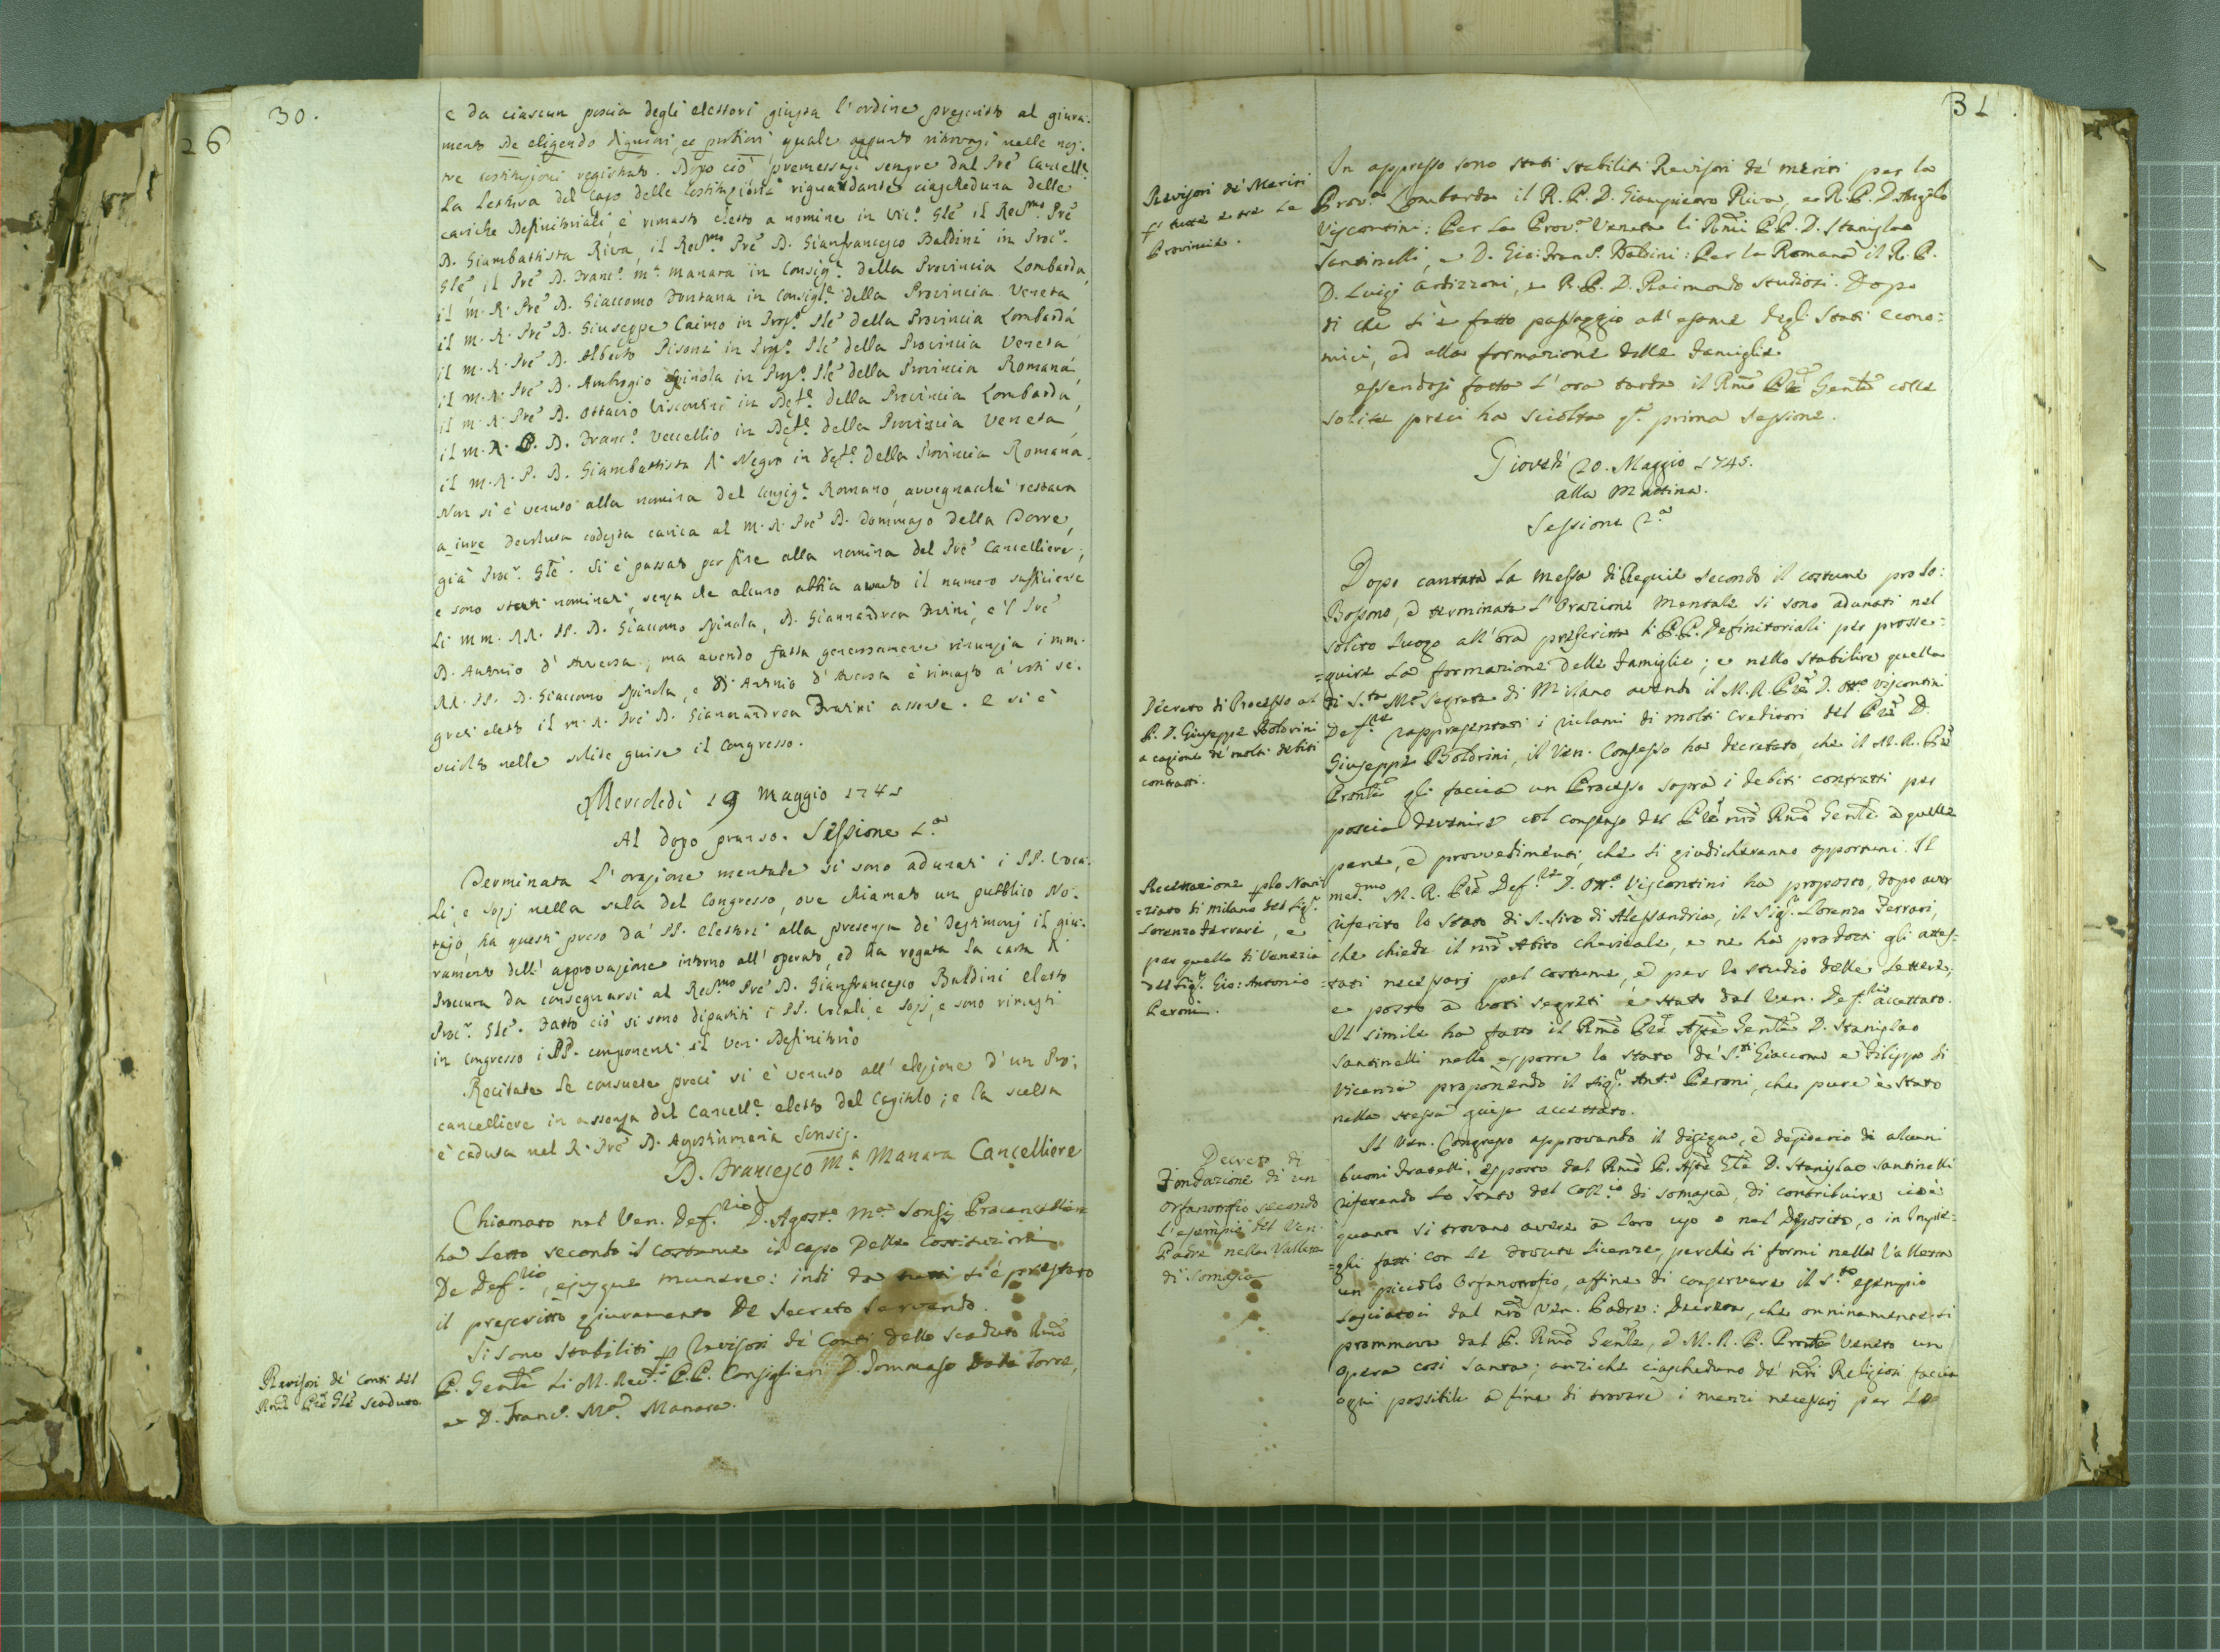 30.
26
e da ciascun poscia degli elettori giusta l'ordine prescritto al giura:
mento De eligendo digniori, et potiori quale appunto ritrovasi nelle nos:
tre Costituzioni registrato. Dopo ciò premessasi sempre dal Pre Cancell.e
La Lettura del Capo delle Costituzioni riguardante ciascheduna delle
cariche Definitoriali, è rimasto eletto a nomine in Vic.o Gle il Rev.mo Pre
D. Giambattista Riva, il Rev.mo Pre D. Gianfrancesco Baldini in Proc.r
Gle il Pre D. Franc.o M.a Manara in Consig.e della Provincia Lombarda,
il M. R. Pre D. Giaccomo Fontana in Consigl.e della Provincia Veneta
il M. R. Pre D. Giuseppe Caimo in Prop.o Ple della Provincia Lombarda
il M. R. Pre D. Alberto Pisoni in Prop.o Ple della Provincia Veneta
il M. R. Pre D. Ambrogio Spinola in Prop.o Ple della Provincia Romana,
il M. R. Pre D. Ottavio Visconti in Def.e della Provincia Lombarda,
il M. R. P. D. Franc.o Vecellio in Def.e della Provincia Veneta,
il M. R. P. D. Giambattista di Negro in Def.e della Provincia Romana.
Non si è venuto alla nomina del Consig.e Romano, avvegnacchè restava
a iure devoluta codesta carica al M. R. Pre D. Tommaso della Torre,
già Proc.r Gle. Si è passato per fine alla nomina del Pre Cancelliere,
e sono stati nominati, senza che alcuno abbia avuto il numero sufficiente
Li MM. RR. PP. D. Giaccomo Spinola, D. Giannandrea Trarini, e'l Pre
D. Antonio d'Aversa; ma avendo fatta generosamente rinunzia i MM.
RR. PP. D. Giaccomo Spinola, e D. Antonio d'Aversa è rimasto a' voti se:
greti eletto il M. R. Pre D. Giannandrea Trarini assente. E si è
sciolto nelle solite guise il Congresso.
Mercoledì 19 Maggio 1745
Al dopo pranso. Sessione 1.a
Terminata l'orazione mentale si sono adunati i PP. Voca:
Li, e Sozj nella sala del Congresso, ove chiamato un pubblico No:
tajo, ha questi preso da' PP. elettori alla presenza de' Testimonj il giu:
ramento dell'approvazione intorno all'operato, ed ha rogata la carta di
Procura da consegnarsi al Rev.mo Pre D. Gianfrancesco Baldini eletto
Proc.r Gle. Fatto ciò si sono dipartiti i PP. Vocali, e Sozj, e sono rimasti
in Congresso i PP. componenti il Ven. Definitorio
Recitate le consuete preci si è venuto all'elezione d'un Pro:
cancelliere in assenza del Cancell.e eletto del Capitolo; e la scelta
è caduta nel R. Pre D. Agostinmaria Sonsis.
D. Francesco M.a Manara Cancelliere
Chiamato nel Ven. Def.rio D. Agost.o M.a Sonsis Procancelliere
ha Letto secondo il costume il capo delle Costituzioni
De Def.rio, ejusque munere: indi da tutti si è prestato
il prescritto giuramento De Secreto servando.
Si sono stabiliti p Revisori de' Conti dello scaduto Rmo
P. Gentle Li M. Rev.di P.P. Consiglieri D. Tommaso Dala Torre,
e D. Franc.o M.a Manara.
Revisori de' Conti del
Rmo Pre Gle scaduto
31.
Revisori de' Meriti
p tutte e tre Le
Provincie.
In appresso sono stati stabiliti Revisori de' meriti per la
Prov.a Lombarda il R. P. D. Giampietro Riva, e R. P. D. Angelo
Viscontini; Per la Prov.a Veneta li Rmi PP. D. Stanislao
Santinelli, e D. Gio: Fran.o Baldini: Per la Romana il R. P.
D. Luigi Ardizzoni, e R. P. D. Raimondo Studiosi. Dopo
di che si è fatto passaggio all'esame degli Stati econo:
mici, ed alla formazione delle Famiglie.
essendosi fatta l'ora tarda il Rmo Pre Gentle colle
solite preci ha sciolta q.a prima sessione.
Giovedì 20. Maggio 1745.
alla Mattina.
Sessione 2.a
Dopo cantata la Messa di Requie secondo il costume pro So:
Bossono, e terminata l'Orazione Mentale si sono adunati nel
solito luogo all'ora prescritta li P.P. Definitoriali per prosse:
=guire La formazione delle Famiglie; e nello stabilire quella
di S.ta M.a Segreta di Milano avendo il M. R. Pre D. Ott.o Viscontini
Def.re rappresentati i richami di molti Creditori del Pre D.
Giuseppe Boldrini, il Ven. Consesso ha decretato, che il M. R. Pre
Prontle gli faccia un Processo sopra i debiti contratti per
poscia devenire col consenso del Pre nro Rmo Gentle a quelle
pene, e provvedimenti, che si giudicheranno opportuni. Il
med.mo M. R. Pre Def.re D. Ott.o Viscontini ha proposto, dopo aver
riferito lo Stato di S. Siro di Alessandria, il Sig.r Lorenzo Ferrari,
che chiede il nro Abito chericale, e ne ha prodotti gli attes:
=tati necessarj pel costume, e per lo studio delle Lettere,
e posto a voti segreti è stato dal Ven. Def.rio accettato.
Il simile ha fatto il Rmo Pre Asste Gentle D. Stanislao
Santinelli nello esporre lo stato de' S.ti Giaccomo e Filippo di
Vicenza proponendo il Sig.r Ant.o Peroni, che pure è stato
nella stessa guisa accettato.
Il Ven. Congresso approvando il disegno, e desiderio di alcuni
buoni Fratelli, esposto dal Rmo P. Asste Gle D. Stanislao Santinelli
riferendo lo Stato del Coll.io di Somasca, di contribuire cioè
quanto si trovano avere a loro uso o nel Deposito, o in Impie:
=ghi fatti con le dovute Licenze, perchè si formi nella Valletta
un piccolo Orfanotrofio, affine di conservare il S.to esempio
lasciatoci dal nro Ven. Padre: Decreta, che onninamente si
prommova dal P. Rmo Gentle, e M. R. P. Prontle Veneto un
Opera così santa; anzichè ciascheduno de' nri Religiosi faccia
ogni possibile a fine di trovare i mezzi necessarj per Lo
Decreto di Processo al
P. D. Giuseppe Boldrini
a cagione de' molti debiti
contratti.
Accettazione plo Novi
=ziato di Milano del Sig.r
Lorenzo Ferrari, e
per quello di Venezia
del Sig.r Gio: Antonio
Peroni.
Decreto di
Fondazione di un
Orfanotrofio secondo
l'esempio del Ven.
Padre nella Valletta
di Somasca